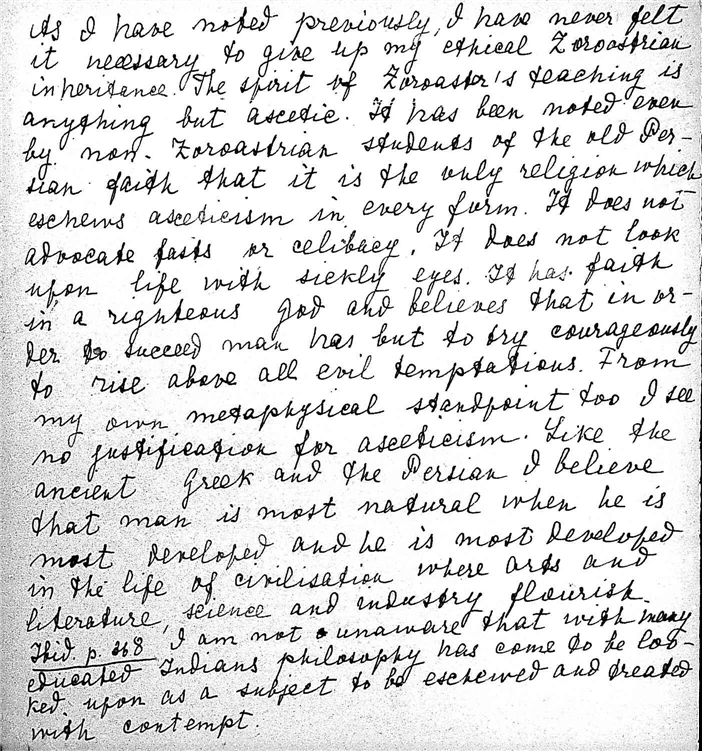 As I have noted previously, I have never felt
it necessary to give up my ethical Zoroastrian
inheritance. The spirit of Zoroaster's teaching is
anything but ascetic. It has been noted even
by non-Zoroastrian students of the old Per-
sian faith that it is the only religion which
eschews asceticism in every form. It does not
advocate fasts or celibacy. It does not look
upon life with sickly eyes. It has faith
in a righteous God and believes that in or-
der to succeed man has but to try courageously
to rise above all evil temptations. From
my own metaphysical standpoint too I see
no justification for asceticism. Like the
ancient Greek and the Persian I believe
that man is most natural when he is
most developed and he is most developed
in the life of civilisation where arts and
literature, science and industry flourish.
Ibid p. 368 I am not unaware that with many
educated Indians philosophy has come to be loo-
ked upon as a subject to be eschewed and treated
with contempt.